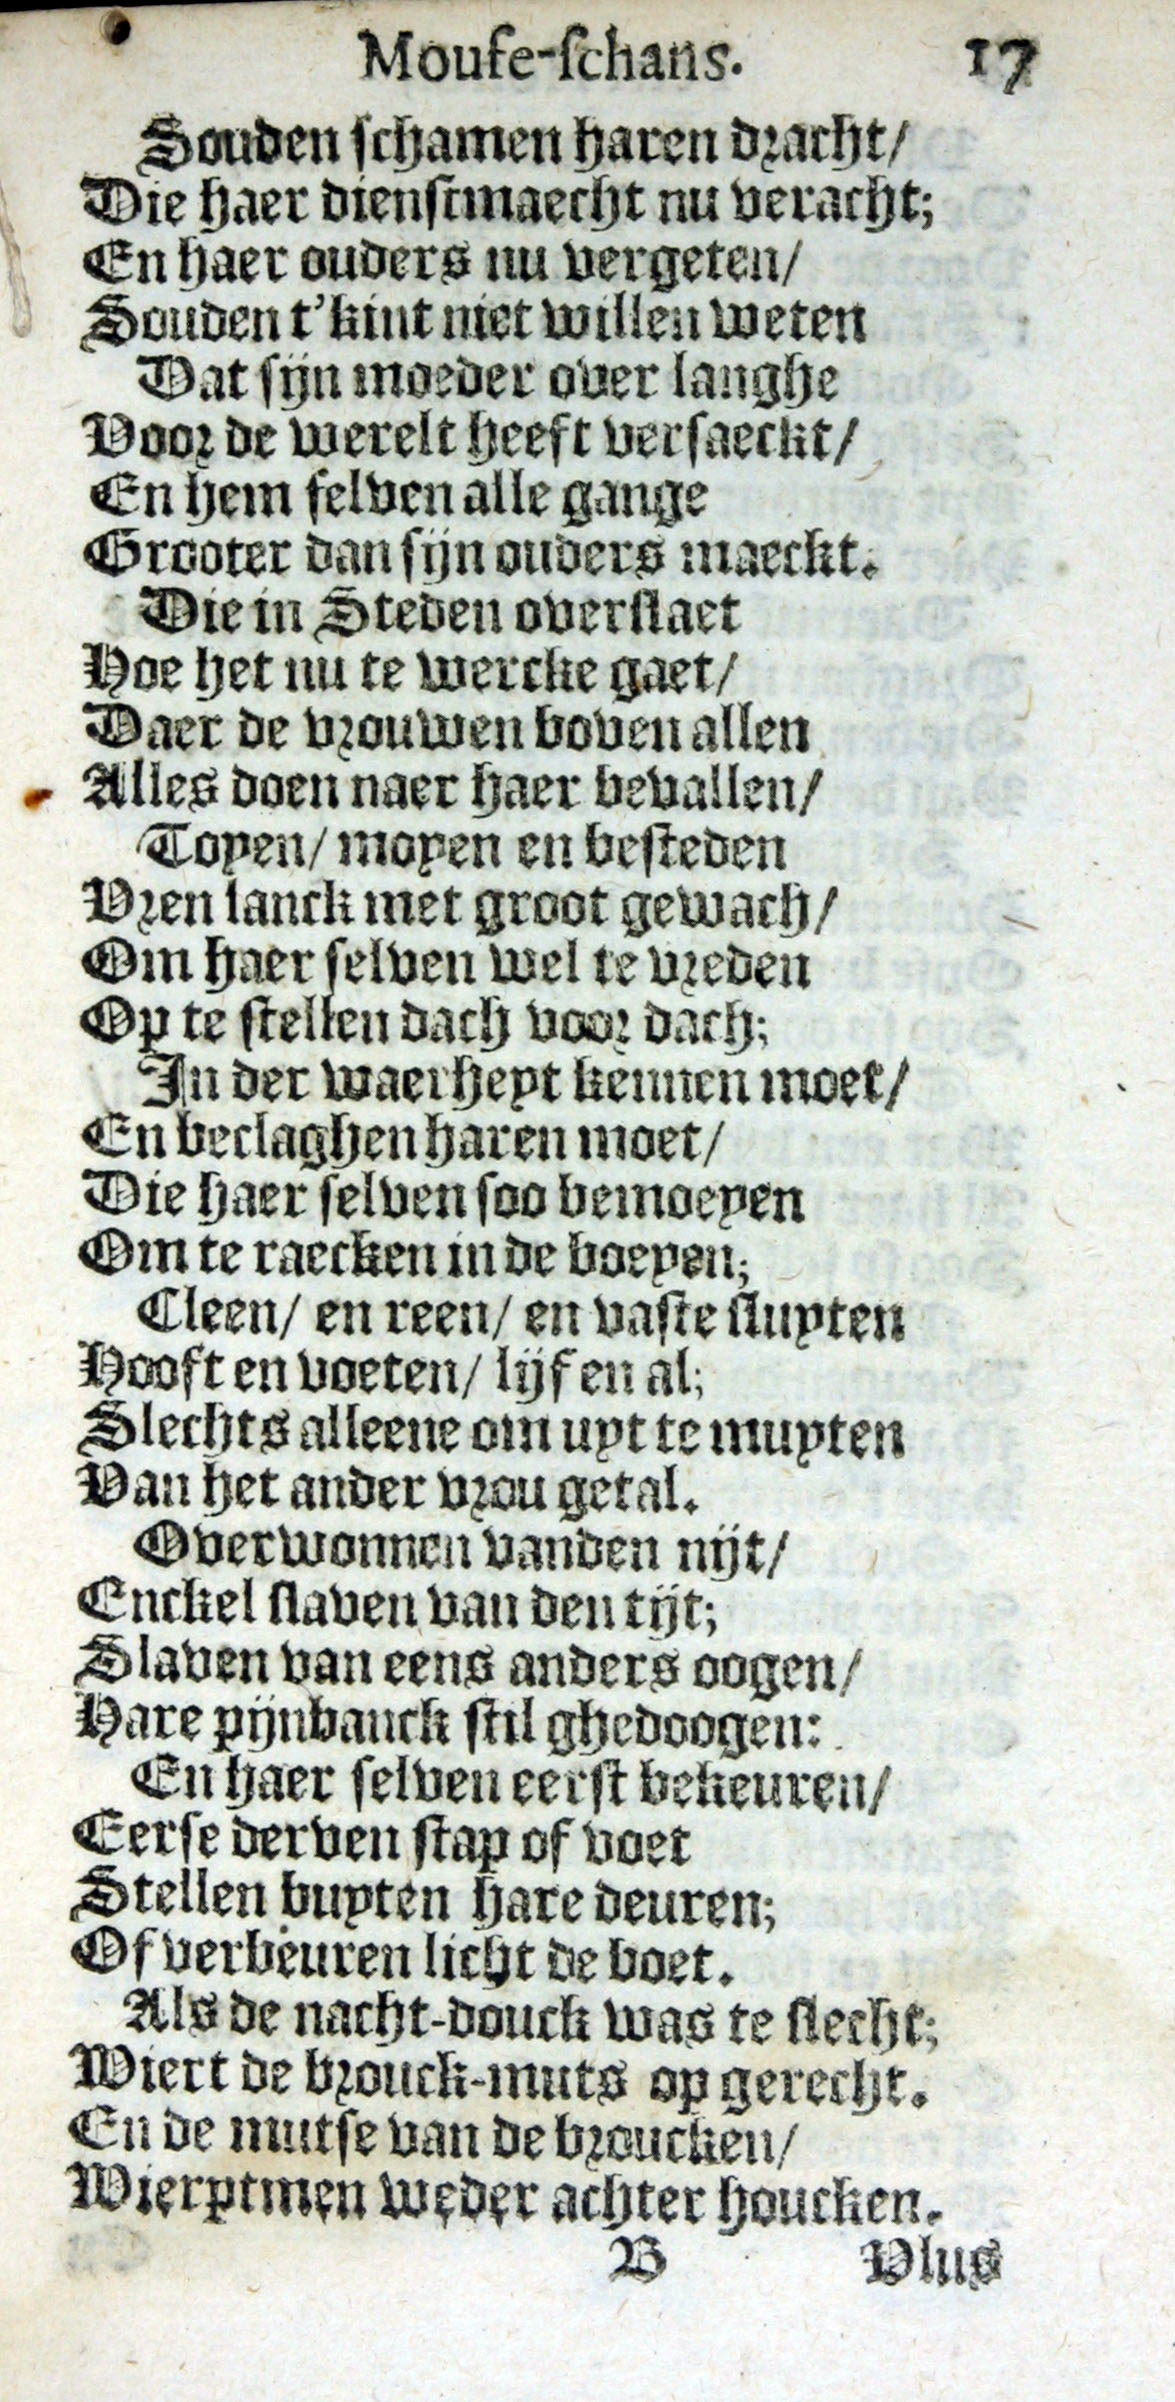 Moufe-schans. 17
Souden schamen haren dracht/
Die haer dienstmaecht nu veracht;
En haer ouders nu vergeten/
Souden t'kint niet willen weten
Dat sijn moeder over langhe
Voor de werelt heeft versaeckt/
En hem selven alle gange
Grooter dan sijn ouders maeckt.
Die in Steden overslaet
Hoe het nu te wercke gaet/
Daer de vrouwen boven allen
Alles doen naer haer bevallen/
Toyen/ moyen en besteden
Vren lanck met groot gewach/
Om haer selven wel te vreden
Op te stellen dach voor dach;
In der waerheyt kennen moet/
En beclaghen haren moet/
Die haer selven soo bemoeyen
Om te raecken in de boeyen;
Cleen/ en reen/ en vaste sluyten
Hooft en voeten/ lijf en al;
Slechts alleene om uyt te muyten
Van het ander vrou getal.
Overwonnen vanden nijt/
Enckel slaven van den tijt;
Slaven van eens anders oogen/
Hare pijnbanck stil ghedoogen:
En haer selven eerst bekeuren/
Eerse derven stap of voet
Stellen buyten hare deuren;
Of verbeuren licht de boet.
Als de nacht-douck was te slecht;
Wiert de brouck-muts op gerecht.
En de mutse van de broucken/
Wierptmen weder achter houcken.
B Vlus